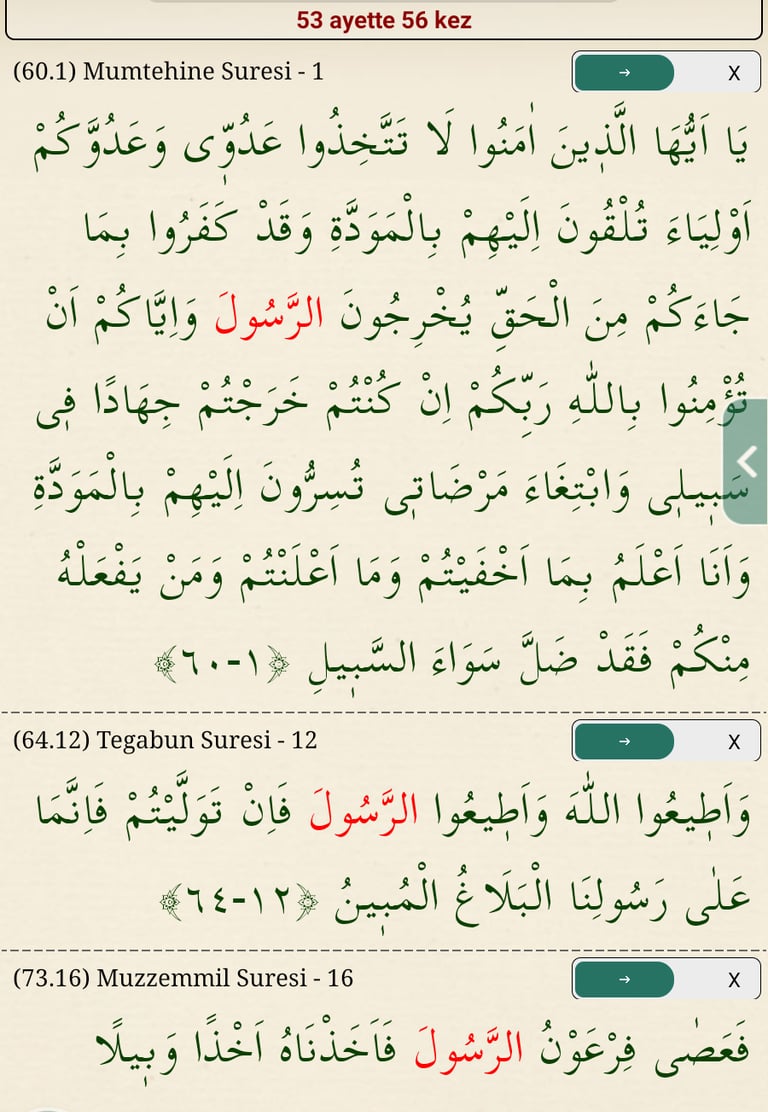 53 ayette 56 kez
(60.1) Mumtehine Suresi - 1
→ X
يَا اَيُّهَا الَّذ۪ينَ اٰمَنُوا لَا تَتَّخِذُوا عَدُوّ۪ى وَعَدُوَّكُمْ
اَوْلِيَاءَ تُلْقُونَ اِلَيْهِمْ بِالْمَوَدَّةِ وَقَدْ كَفَرُوا بِمَا
جَاءَكُمْ مِنَ الْحَقِّ يُخْرِجُونَ الرَّسُولَ وَاِيَّاكُمْ اَنْ
تُؤْمِنُوا بِاللّٰهِ رَبِّكُمْ اِنْ كُنْتُمْ خَرَجْتُمْ جِهَادًا ف۪ى
سَب۪يل۪ى وَابْتِغَاءَ مَرْضَات۪ى تُسِرُّونَ اِلَيْهِمْ بِالْمَوَدَّةِ
وَاَنَا اَعْلَمُ بِمَا اَخْفَيْتُمْ وَمَا اَعْلَنْتُمْ وَمَنْ يَفْعَلْهُ
مِنْكُمْ فَقَدْ ضَلَّ سَوَاءَ السَّب۪يلِ ﴿١-٦٠﴾
(64.12) Tegabun Suresi - 12
→ X
وَاَط۪يعُوا اللّٰهَ وَاَط۪يعُوا الرَّسُولَ فَاِنْ تَوَلَّيْتُمْ فَاِنَّمَا
عَلٰى رَسُولِنَا الْبَلَاغُ الْمُب۪ينُ ﴿١٢-٦٤﴾
(73.16) Muzzemmil Suresi - 16
→ X
فَعَصٰى فِرْعَوْنُ الرَّسُولَ فَاَخَذْنَاهُ اَخْذًا وَب۪يلًا